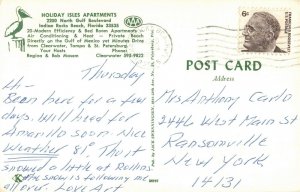 HOLIDAY ISLES APARTMENTS
2200 North Gulf Boulevard
Indian Rocks Beach, Florida 33535
20-Modern Efficiency & Bed Room Apartments -
Air Conditioning & Heat - Private Beach
Directly on the Gulf of Mexico yet Minutes Drive
from Clearwater, Tampa & St. Petersburg.
Your Hosts Phone:
Regina & Bob Massem Clearwater 595-9822
AAA
Thursday
Hi-
Been here for a few
days. Will head for
Amarillo soon. Nice
Weather 81°. That
snowed a little at Rollins
the snow is following me
all over. Love Art
POST CARD
Address
6¢
UNITED STATES
Mrs Anthony Carlo
2446 West Main Street
Ransomville
New York
14131
K